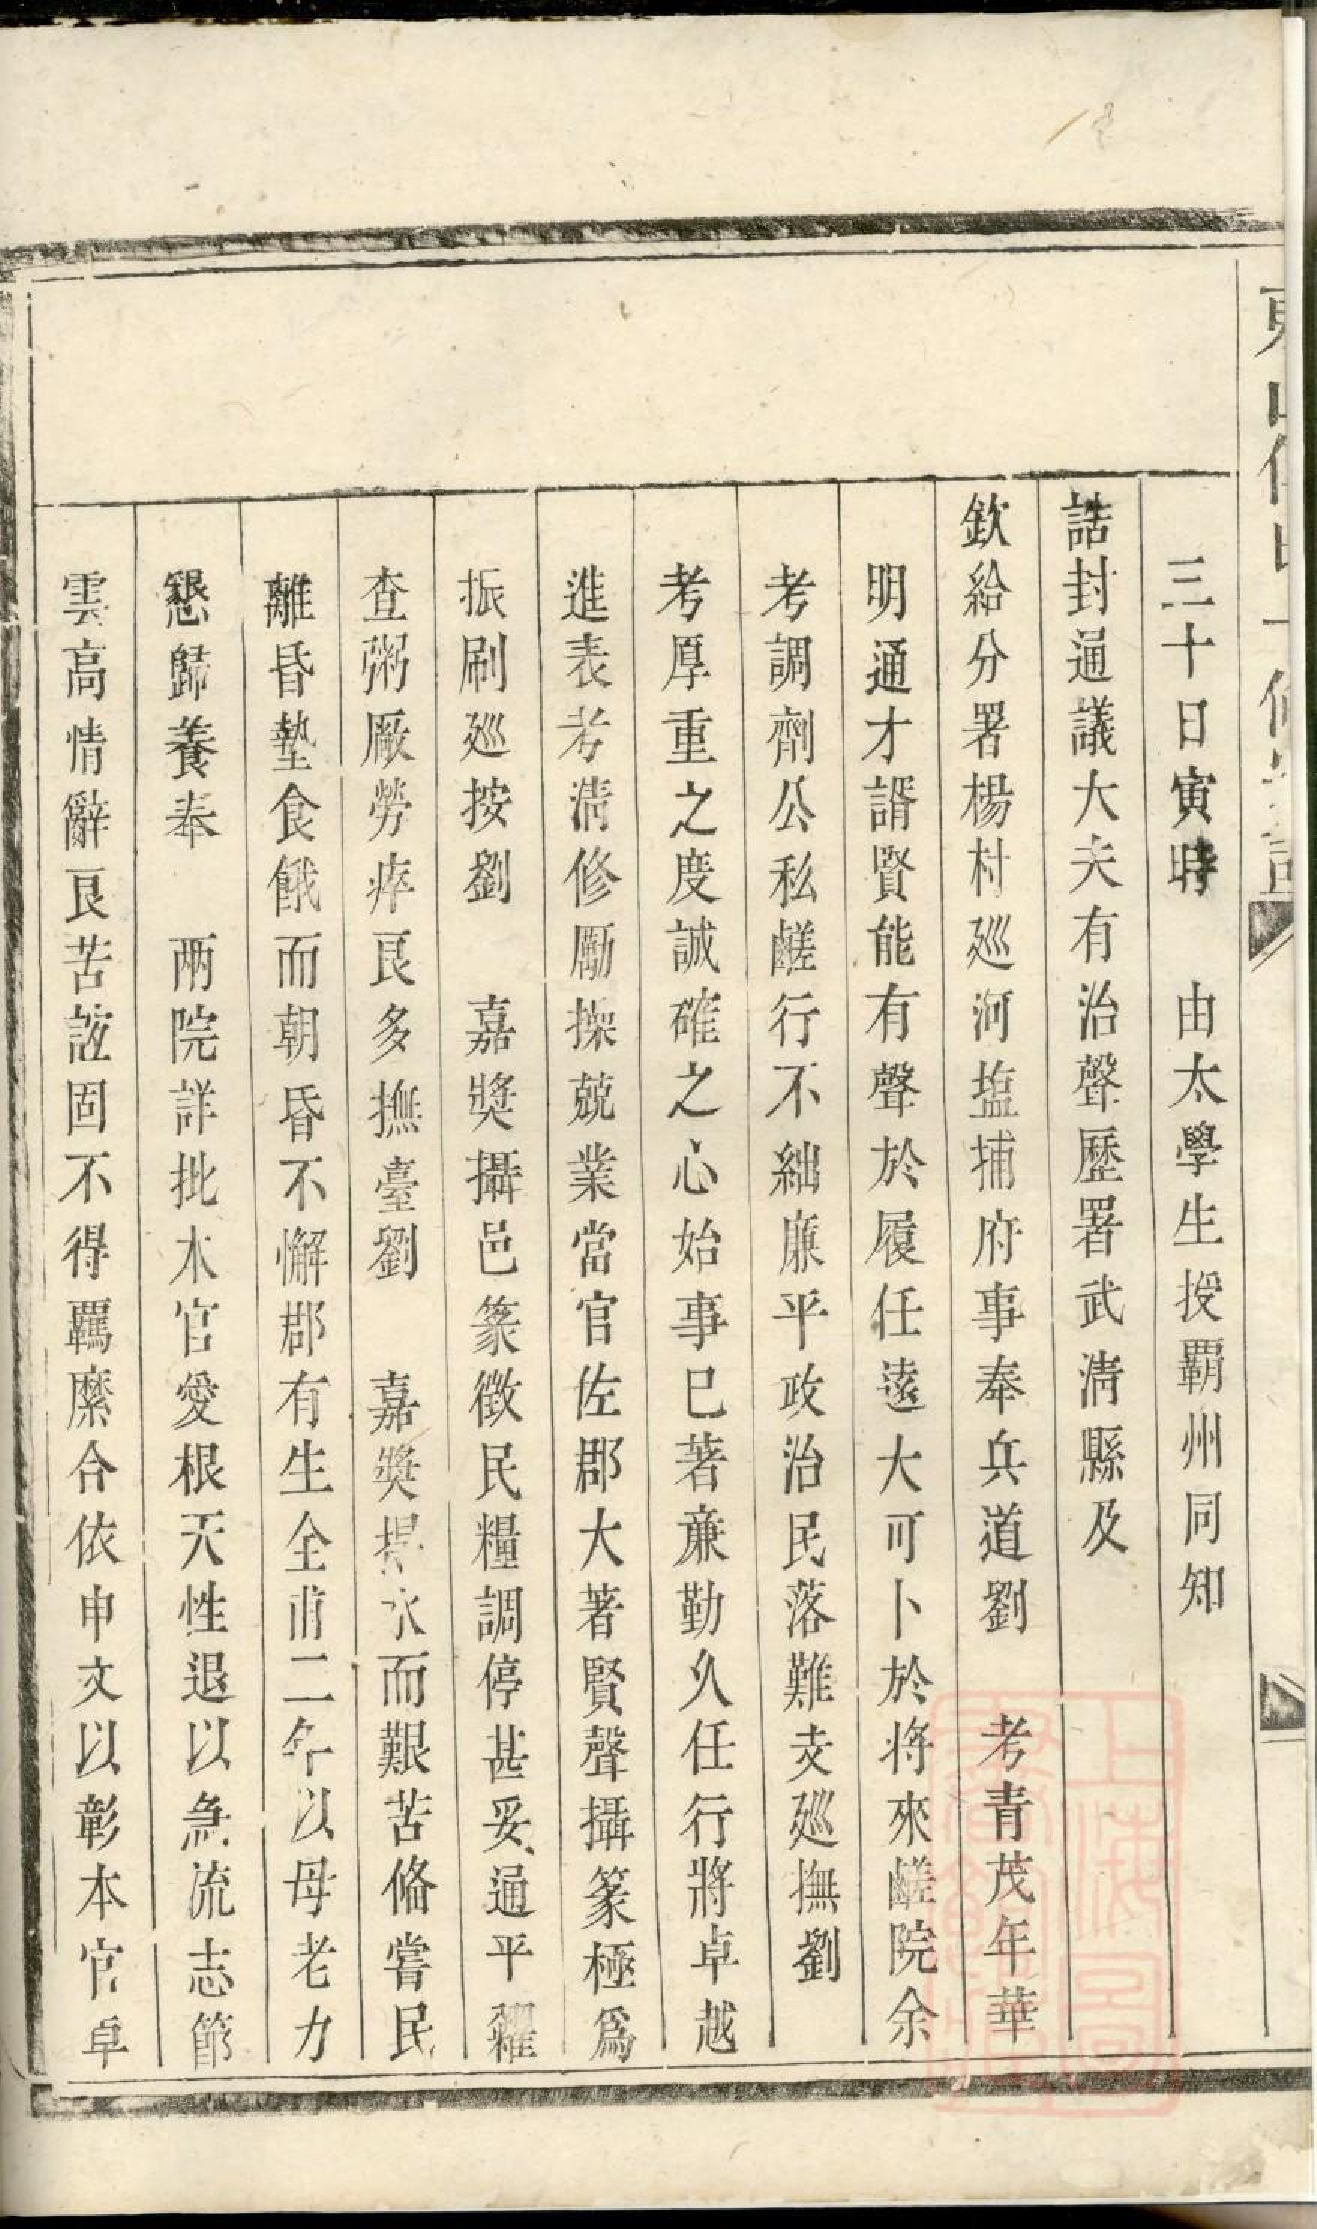 三十日寅時　由太學生授覇州同知
誥封通議大夫有治聲歷署武淸縣及
欽給分署楊村廵河塩捕府事奉兵道劉　考青茂年華
明通才諝賢能有聲於履任遠大可卜於將來鹺院余
考調劑公私鹺行不絀廉平政治民落難支廵撫劉
考厚重之度誠確之心始事巳著亷勤久任行將卓越
進表考淸修勵操兢業當官佐郡大著賢聲攝篆極爲
振刷廵按劉　嘉獎攝邑篆徵民糧調停甚妥通平糶
查粥厰勞瘁艮多撫臺劉　嘉獎 水而艱苦偹嘗民
離昏墊食餓而朝昏不懈郡有生全甫二年以母老力
懇歸養奉　兩院詳批木官愛根天性退以急流志節
雲高情辭艮苦誼固不得覊縻合依申文以彰本官卓
上海圖書館藏